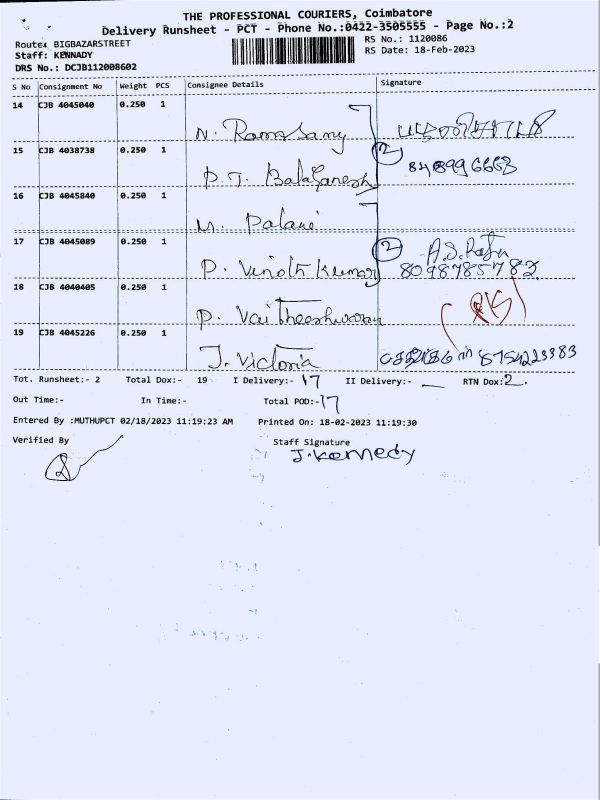 THE PROFESSIONAL COURIERS, Coimbatore
Delivery Runsheet - PCT - Phone No.:0422-3505555 - Page No.:2
Route: BIGBAZARSTREET
RS No.: 1120086
Staff: KENNADY
RS Date: 18-Feb-2023
DRS No.: DCJB112008602
S No Consignment No Weight PCS Consignee Details Signature
14 CJB 4045040 0.250 1
N. Ramasamy
15 CJB 4038738 0.250 1 2
P.T. BalaGanesh
16 CJB 4045840 0.250 1
M. Palani
17 CJB 4045089 0.250 1 2
P. Vinoth Kumar 8098785782
18 CJB 4040405 0.250 1
P. Vaitheeshwaran
19 CJB 4045226 0.250 1
J. Victoria
Tot. Runsheet:- 2 Total Dox:- 19 I Delivery:- 17 II Delivery:- — RTN Dox:2.
Out Time:- In Time:- Total POD:-17
Entered By :MUTHUPCT 02/18/2023 11:19:23 AM Printed On: 18-02-2023 11:19:30
Verified By
Staff Signature
J. Kennedy